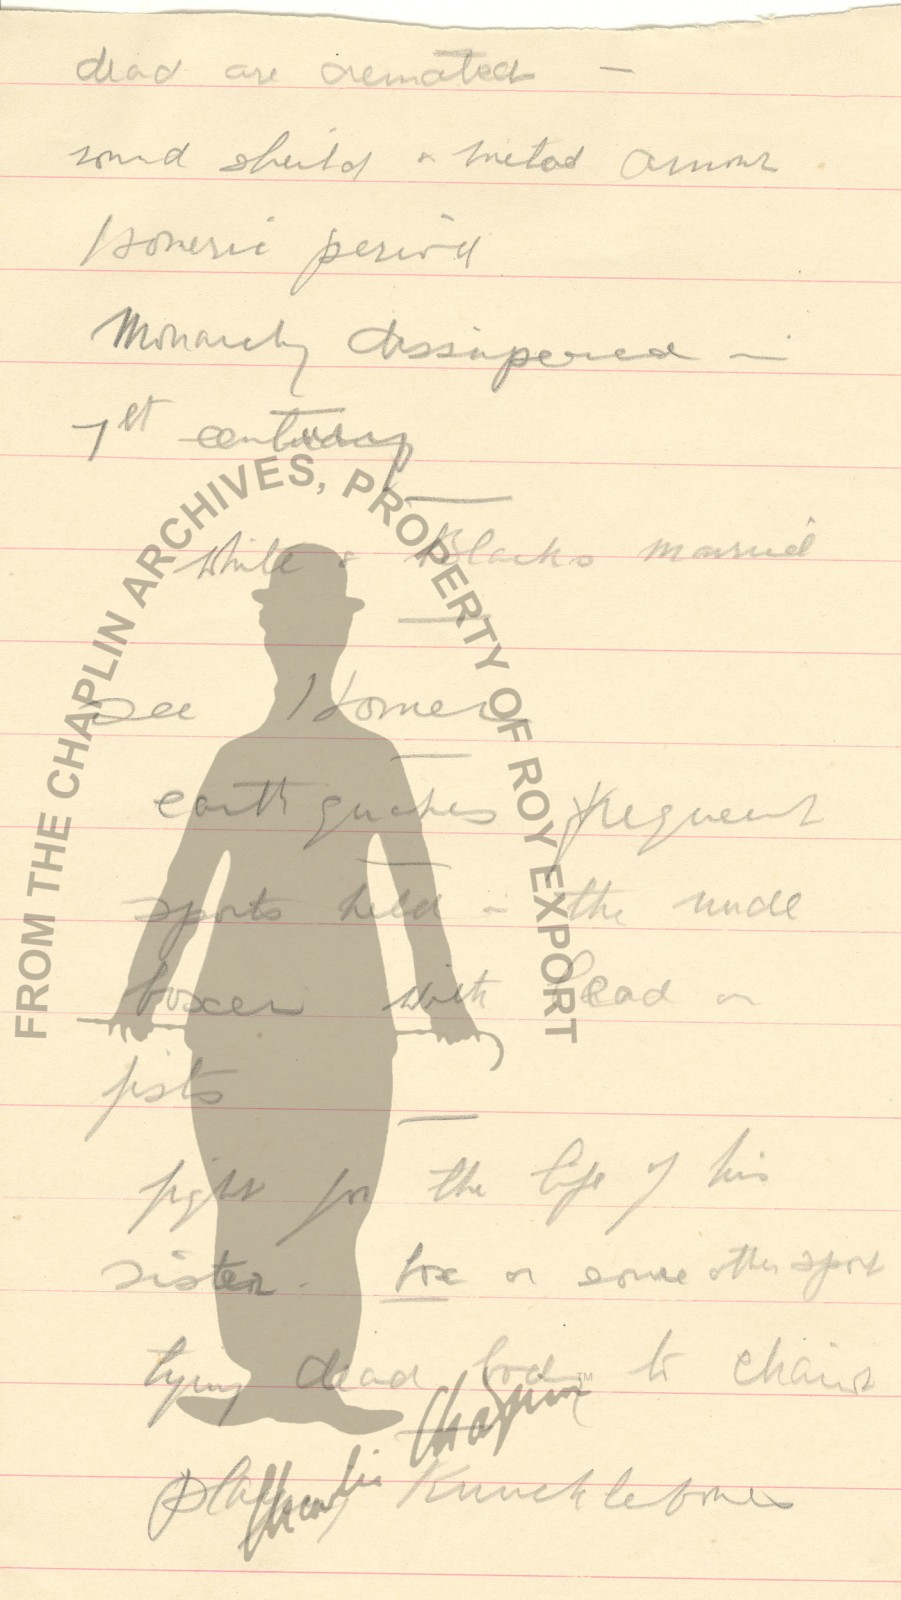 dead are cremated —
round sheild & metal armour
Homeric period
Monarchy dissapered in
1st century
While & Blacks married
see Homer
earth quakes frequent
sports held in the nude
boxer with lead on
fists
fight for the life of his
sister. box or some other sport
tying dead body to chairs
play Knucklebones
FROM THE CHAPLIN ARCHIVES, PROPERTY OF ROY EXPORT
Charlie Chaplin™